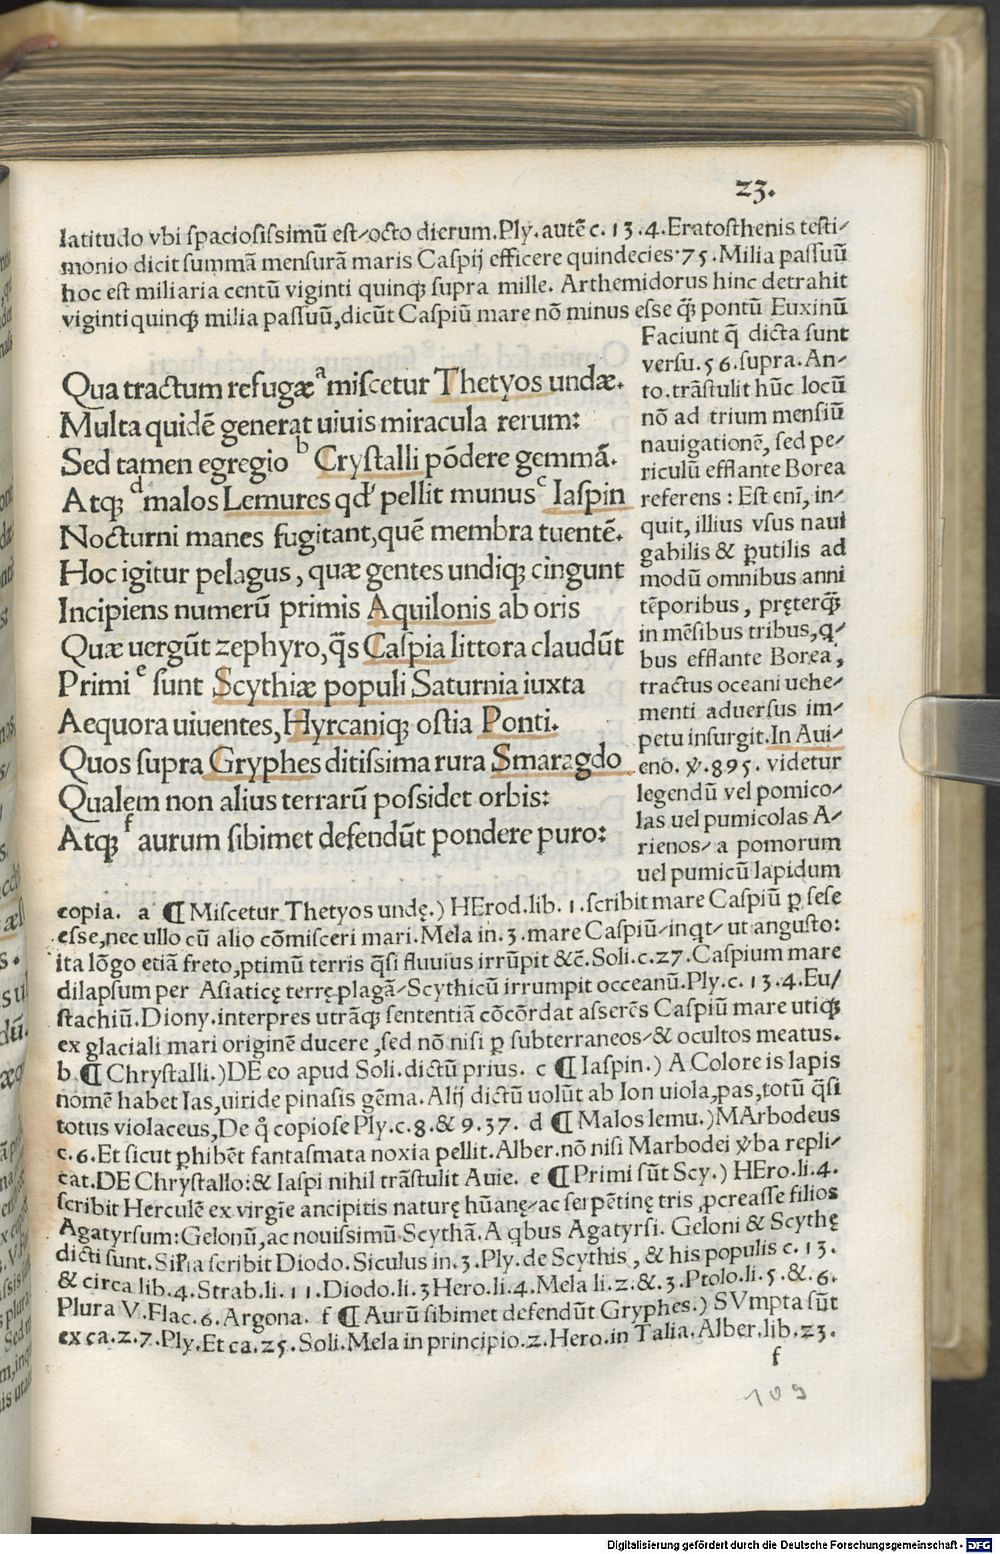 23.
latitudo vbi spaciosissimũ est/octo dierum.Ply.autẽ c.13.4.Eratosthenis testi/
monio dicit summã mensurã maris Caspij efficere quindecies·75.Milia passuũ
hoc est miliaria centũ viginti quinqꝫ supra mille. Arthemidorus hinc detrahit
vigintiquinqꝫ milia passuũ,dicũt Caspiũ mare nõ minus esse qꝫ̃ pontũ Euxinũ
Faciunt q̃ dicta sunt
versu.56.supra.An/
to.trãstulit hũc locũ
nõ ad trium mensiũ
nauigationẽ, sed pe/
riculũ efflante Borea
referens : Est eni᷑, in/
quit, illius vsus naui
gabilis & ꝑutilis ad
modũ omnibus anni
tẽporibus, pręterqꝫ̃
in mẽsibus tribus,q᷑/
bus efflante Borea,
tractus oceani uehe/
menti aduersus im/
petu insurgit.In Aui/
eno. ꝟ.895. videtur
legendũ vel pomico/
las uel pumicolas A/
rienos/ a pomorum
uel pumicũ lapidum
Qua tractum refugæ a miscetur Thetyos undæ.
Multa quidẽ generat uiuis miracula rerum:
Sed tamen egregio b Crystalli põdere gemmã.
Atqꝫ d malos Lemures qd' pellit munus c Iaspin
Nocturni manes fugitant,quẽ membra tuentẽ.
Hoc igitur pelagus, quæ gentes undiqꝫ cingunt
Incipiens numerũ primis Aquilonis ab oris
Quæ uergũt zephyro,q̃s Caspia littora claudũt
Primi e sunt Scythiæ populi Saturnia iuxta
Aequora uiuentes,Hyrcaniqꝫ ostia Ponti.
Quos supra Gryphes ditissima rura Smaragdo
Qualem non alius terrarũ possidet orbis:
Atqꝫ f aurum sibimet defendũt pondere puro:
copia. a ¶ Miscetur Thetyos undę.) HErod.lib. 1.scribit mare Caspiũ ꝑ sese
esse,nec ullo cũ alio cõmisceri mari.Mela in.3.mare Caspiũ/inqt/ ut angusto:
ita lõgo etiã freto,ptimũ terris q̃si fluuius irrũpit &c̃.Soli.c.27.Caspium mare
dilapsum per Asiaticę terrę plagã/Scythicũ irrumpit occeanũ.Ply.c.13.4.Eu/
stachiũ.Diony.interpres utrãqꝫ sententiã cõcõrdat asserẽs Caspiũ mare utiqꝫ
ex glaciali mari originẽ ducere,sed nõ nisi ꝑ subterraneos/& ocultos meatus.
b ¶ Chrystalli.)DE eo apud Soli.dictũ prius. c ¶ Iaspin.) A Colore is lapis
nomẽ habet Ias,uiride pinasis gẽma.Alij dictũ uolũt ab Ion uiola,pas,totũ q̃si
totus violaceus,De q̊ copiose Ply.c.8.& 9.37. d ¶ Malos lemu.)MArbodeus
c.6.Et sicut ꝑhibẽt fantasmata noxia pellit.Alber.nõ nisi Marbodei ꝟba repli/
cat.DE Chrystallo:& Iaspi nihil trãstulit Auie. e ¶ Primi sũt Scy.) HEro.li.4.
scribit Herculẽ ex virgĩe ancipitis naturę hũanę/ac serpẽtinę tris ,pcreasse filios
Agatyrsum:Gelonũ,ac nouissimũ Scythã.A qbus Agatyrsi. Geloni & Scythę
dicti sunt.Sił'ia scribit Diodo.Siculus in.3.Ply.de Scythis, & his populis c.13.
& circa lib.4.Strab.li.11.Diodo.li.3Hero.li.4.Mela li.2.&.3.Ptolo.li.5.&.6.
Plura V.Flac.6.Argona. f ¶ Aurũ sibimet defendũt Gryphes.) SVmpta sũt
ex ca.2.7.Ply.Et ca.25.Soli.Mela in principio.2.Hero.in Talia.Alber.lib.23.
f
109
Digitalisierung gefördert durch die Deutsche Forschungsgemeinschaft - DFG